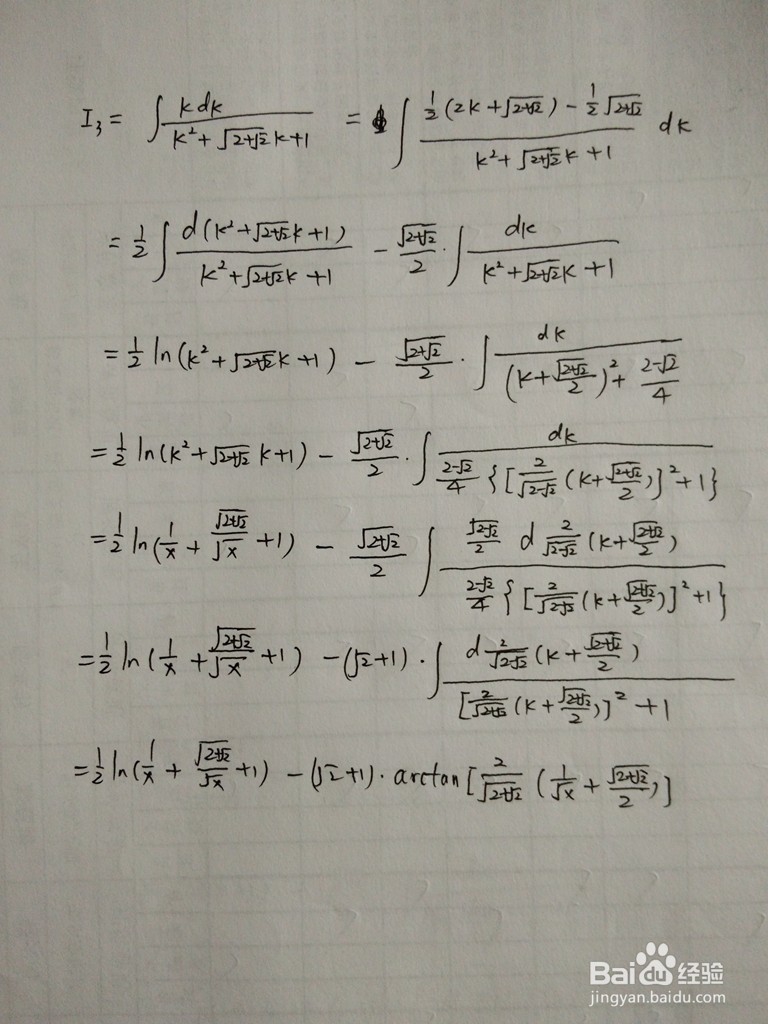 I₃ = ∫ k dk / (k² + √(2+√2) k + 1) = ∫ [½(2k + √(2+√2)) − ½√(2+√2)] / (k² + √(2+√2) k + 1) dk
= ½ ∫ d(k² + √(2+√2) k + 1) / (k² + √(2+√2) k + 1) − √(2+√2)/2 · ∫ dk / (k² + √(2+√2) k + 1)
= ½ ln(k² + √(2+√2) k + 1) − √(2+√2)/2 · ∫ dk / ((k + √(2+√2)/2)² + (2−√2)/4)
= ½ ln(k² + √(2+√2) k + 1) − √(2+√2)/2 · ∫ dk / ((2−√2)/4 {[2/√(2−√2) (k + √(2+√2)/2)]² + 1})
= ½ ln(1/x + √(2+√2)/√x + 1) − √(2+√2)/2 ∫ √(2−√2)/2 d 2/√(2−√2) (k + √(2+√2)/2) / ((2−√2)/4 {[2/√(2−√2) (k + √(2+√2)/2)]² + 1})
= ½ ln(1/x + √(2+√2)/√x + 1) − (√2+1) · ∫ d 2/√(2−√2) (k + √(2+√2)/2) / ([2/√(2−√2) (k + √(2+√2)/2)]² + 1)
= ½ ln(1/x + √(2+√2)/√x + 1) − (√2+1) · arctan[2/√(2−√2) (1/√x + √(2+√2)/2)]
Baidu经验
jingyan.baidu.com